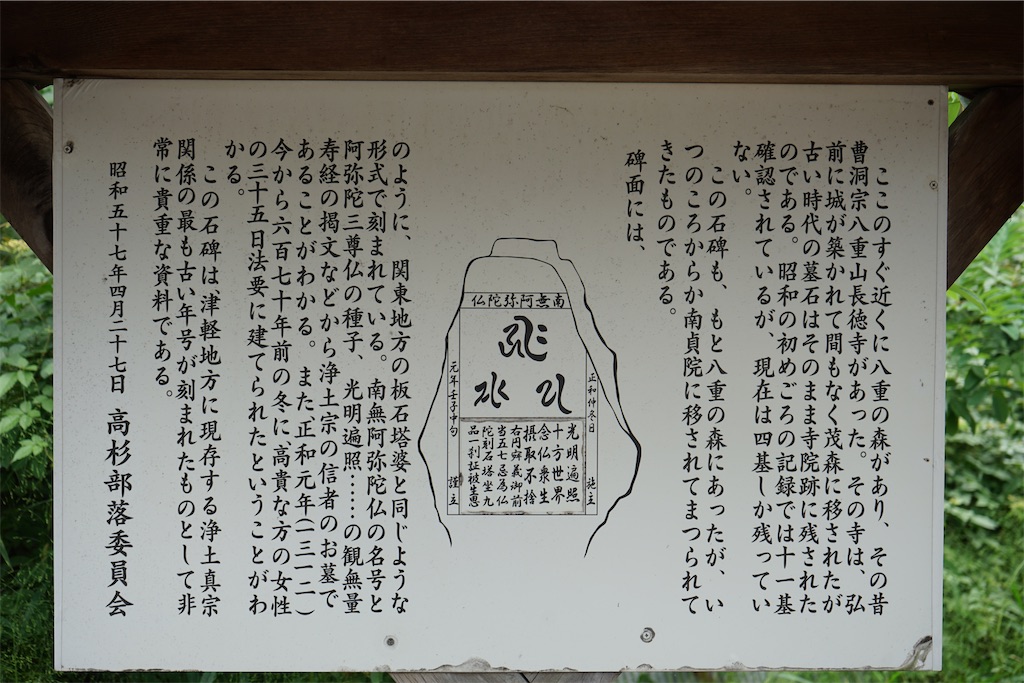 ここのすぐ近くに八重の森があり、その昔
曹洞宗八重山長徳寺があった。その寺は、弘
前に城が築かれて間もなく茂森に移されたが
古い時代の墓石はそのまま寺院跡に残された
のである。昭和の初めごろの記録では十一基
確認されているが、現在は四基しか残ってい
ない。
この石碑も、もと八重の森にあったが、い
つのころからか南貞院に移されてまつられて
きたものである。
碑面には、
南無阿弥陀仏
正和仲冬日 施主
光明遍照
十方世界
念仏衆生
摂取不捨
右円舜義御前
当五七忌為仏
陀刹石塔坐九
品一利証被生恵
元年壬子中旬 謹主
のように、関東地方の板石塔婆と同じような
形式で刻まれている。南無阿弥陀仏の名号と
阿弥陀三尊仏の種子、光明遍照……の観無量
寿経の掲文などから浄土宗の信者のお墓で
あることがわかる。また、正和元年(一三一二)
今から六百七十年前の冬に、高貴な方の女性
の三十五日法要に建てられたということがわ
かる。
この石碑は、津軽地方に現存する浄土真宗
関係の最も古い年号が刻まれたものとして非
常に貴重な資料である。
昭和五十七年四月二十七日 高杉部落委員会